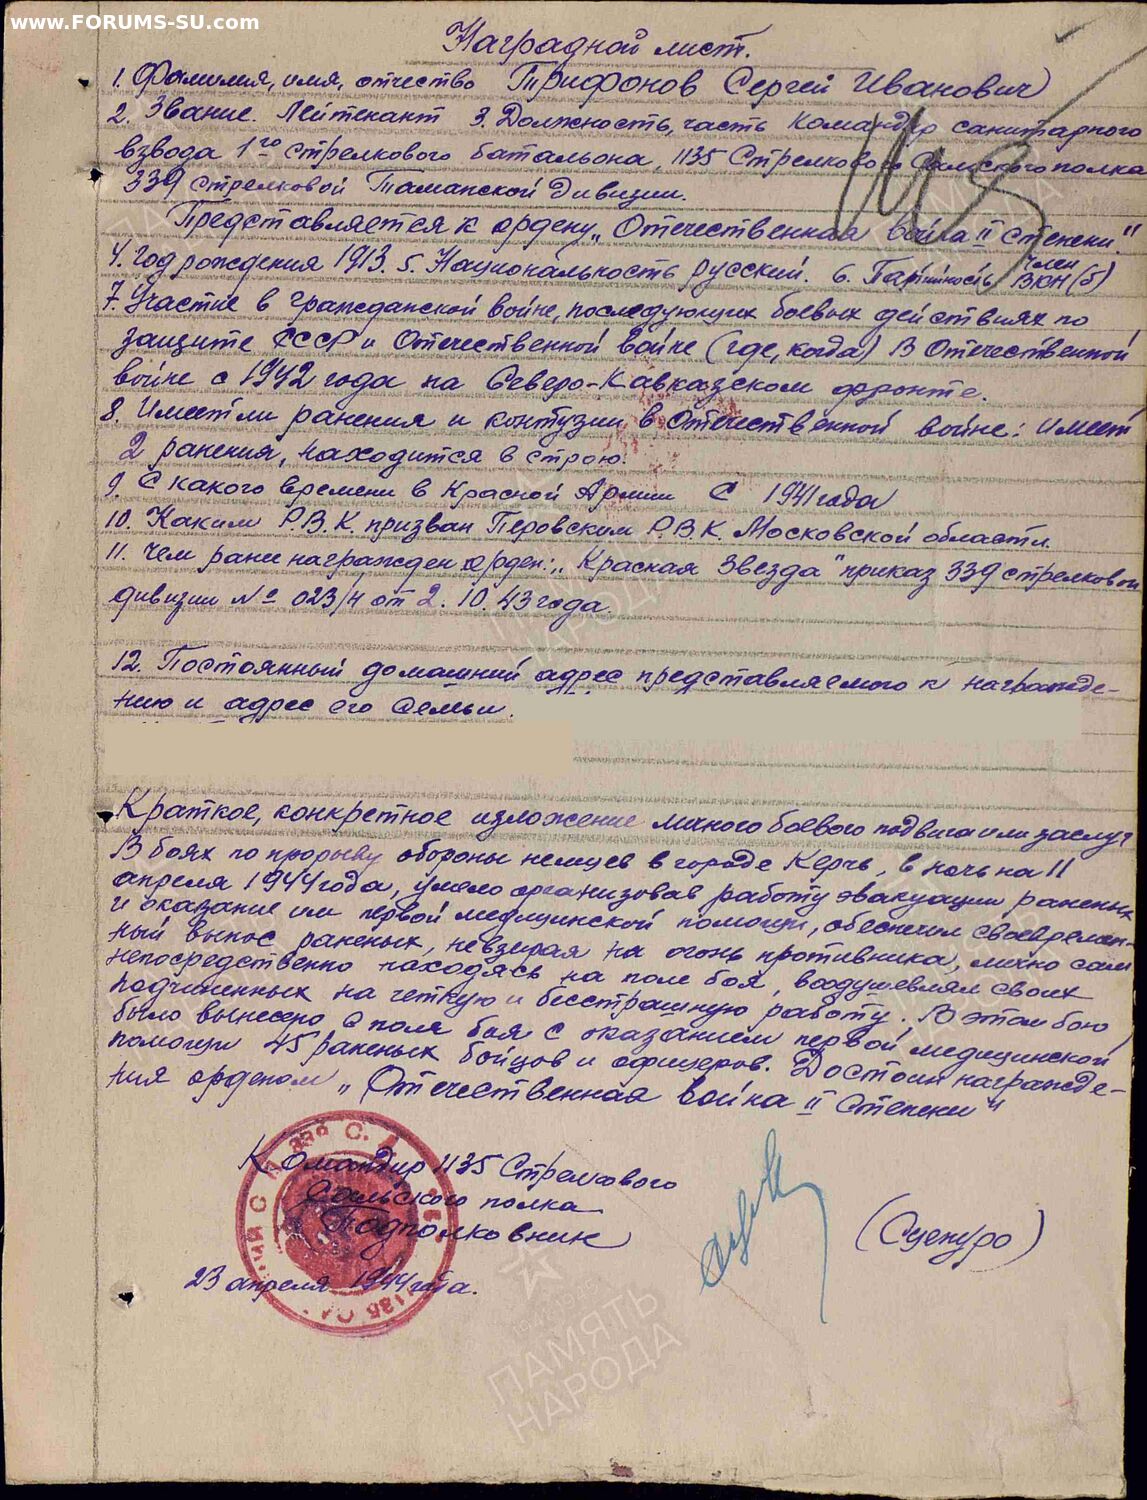 www.FORUMS-SU.com
Наградной лист.
1. Фамилия, имя, отчество Трифонов Сергей Иванович
2. Звание. Лейтенант 3. Должность, часть Командир санитарного
взвода 1го стрелкового батальона, 1135 Стрелкового Сальского полка
339 стрелковой Таманской Дивизии.
Представляется к ордену „Отечественная война II степени."
4. Год рождения 1913. 5. Национальность русский. 6. Партийность член ВКП(б)
7. Участие в гражданской войне, последующих боевых действиях по
защите СССР и Отечественной войне (где, когда) В Отечественной
войне с 1942 года на Северо-Кавказском фронте.
8. Имеет ли ранения и контузии в Отечественной войне: имеет
2 ранения, находится в строю.
9. С какого времени в Красной Армии С 1941 года
10. Каким Р.В.К призван Перовским Р.В.К. Московской области.
11. Чем ранее награжден орден: „Красная Звезда" приказ 339 стрелковой
дивизии № 023/н от 2.10.43 года.
12. Постоянный домашний адрес представляемого к награжде-
нию и адрес его семьи.
Краткое, конкретное изложение личного боевого подвига или заслуг
В боях по прорыву обороны немцев в городе Керчь, в ночь на 11
апреля 1944 года, умело организовав работу эвакуации раненых
и оказание им первой медицинской помощи, обеспечил своевремен-
ный вынос раненых, невзирая на огонь противника, лично сам
непосредственно находясь на поле боя, воодушевлял своих
подчиненных на четкую и бесстрашную работу. В этом бою
было вынесено с поля боя с оказанием первой медицинской
помощи 45 раненых бойцов и офицеров. Достоин награжде-
ния орденом „Отечественная война II степени"
Командир 1135 Стрелкового
Сальского полка
Подполковник
(Сценуро)
23 апреля 1944 года.
ПАМЯТЬ
НАРОДА